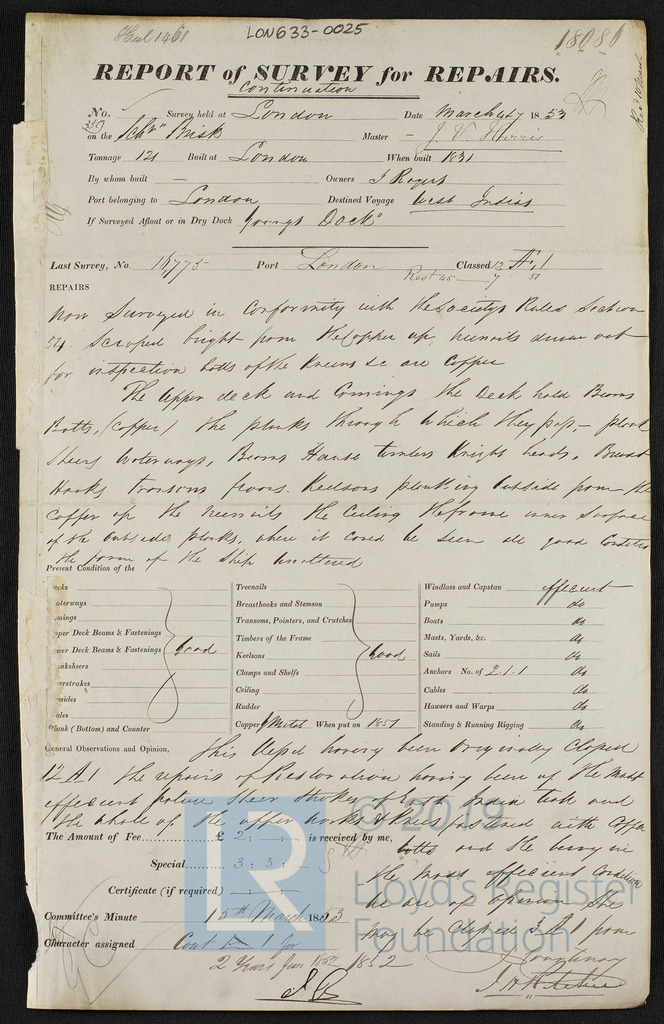 Hul 1461
LON633-0025
18086
REPORT of SURVEY for REPAIRS.
Continuation
No. Survey held at London Date March 4&7 1853
350
on the Schr Brisk Master
Tonnage 121 Built at London When built 1831
By whom built — Owners J Rogers
Port belonging to London Destined Voyage West Indias
If Surveyed Afloat or in Dry Dock Youngs Dock
Last Survey, No. 16775 Port London Classed 12 A 1
REPAIRS
now Surveyed in Conformity with the Societys Rules Section
54. Scraped bright from the Copper up, treenails driven out
for inspection bolts of the Knees &c are Copper
The Upper deck and Comings the Deck hold Beams
Bolts, (Copper) the planks through which they pass – plank
Sheers Waterways, Beams Hause timbers Knight heads, Breast
Hooks Transoms floors. Keelsons planking Outside from the
Copper up the treenails the Ceiling the frame inner Surface
of the Outside planks, where it could be seen all good Condition
the form of the Ship Unaltered
Present Condition of the
ecks
aterways
mings
pper Deck Beams & Fastenings
wer Deck Beams & Fastenings Good
anksheers
erstrakes
psides
ales
Plank (Bottom) and Counter
Treenails
Breasthooks and Stemson
Transoms, Pointers, and Crutches
Timbers of the Frame
Keelsons Good
Clamps and Shelfs
Ceiling
Rudder
Copper Y Metal When put on 1851
Windlass and Capstan efficient
Pumps do
Boats do
Masts, Yards, &c. do
Sails do
Anchors No. of 2.1.1 do
Cables do
Hawsers and Warps do
Standing & Running Rigging do
General Observations and Opinion, This Vessel having been Originally Classed
12 A1 the repairs of Restoration having been of the most
efficient nature Sheer Strakes
the whole of the upper works & Knees fastened with Copper
bolts and She being in
the most efficient Condition
we are of opinion She
may be Classed A1 from
The Amount of Fee £ 2 : - : - is received by me,
Special 3 : 3 : -
Certificate (if required) - : - : -
Committee's Minute 15th March 1853
Character assigned Cont A 1 for
2 Years from 1852
© 2019
LR
Lloyd's Register
Foundation